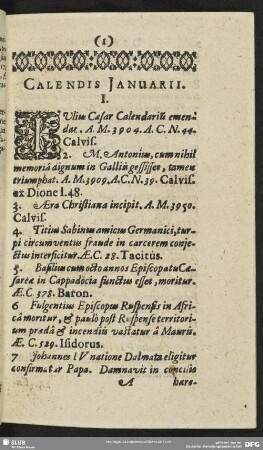 (1)
CALENDIS JANUARII.
I.
IUlius Cæsar Calendariũ emen-
dat. A. M. 3904. A. C. N. 44.
Calvis.
2. M. Antonius, cum nihil
memoriâ dignum in Galliis gessisset, tamen
triumphat. A. M. 3909. A. C. N. 39. Calvis.
ex Dione l. 48.
3. Æra Christiana incipit. A. M. 3950.
Calvis.
4. Titius Sabinus amicus Germanici, tur-
pi circumventus fraude in carcerem conje-
ctus interficitur. Æ. C. 28. Tacitus.
5. Basilius cum octo annos Episcopatu Cæ-
sareæ in Cappadocia functus esset, moritur.
Æ. C. 378. Baron.
6 Fulgentius Episcopus Ruspensis in Afri-
cá moritur, & paulò post Ruspense territori-
um prædâ & incendiis vastatur à Mauris.
Æ. C. 529. Isidorus.
7 Johannes IV natione Dalmata eligitur
confirmatur Papa. Damnavit in concilio
A hære-
SLUB
DFG